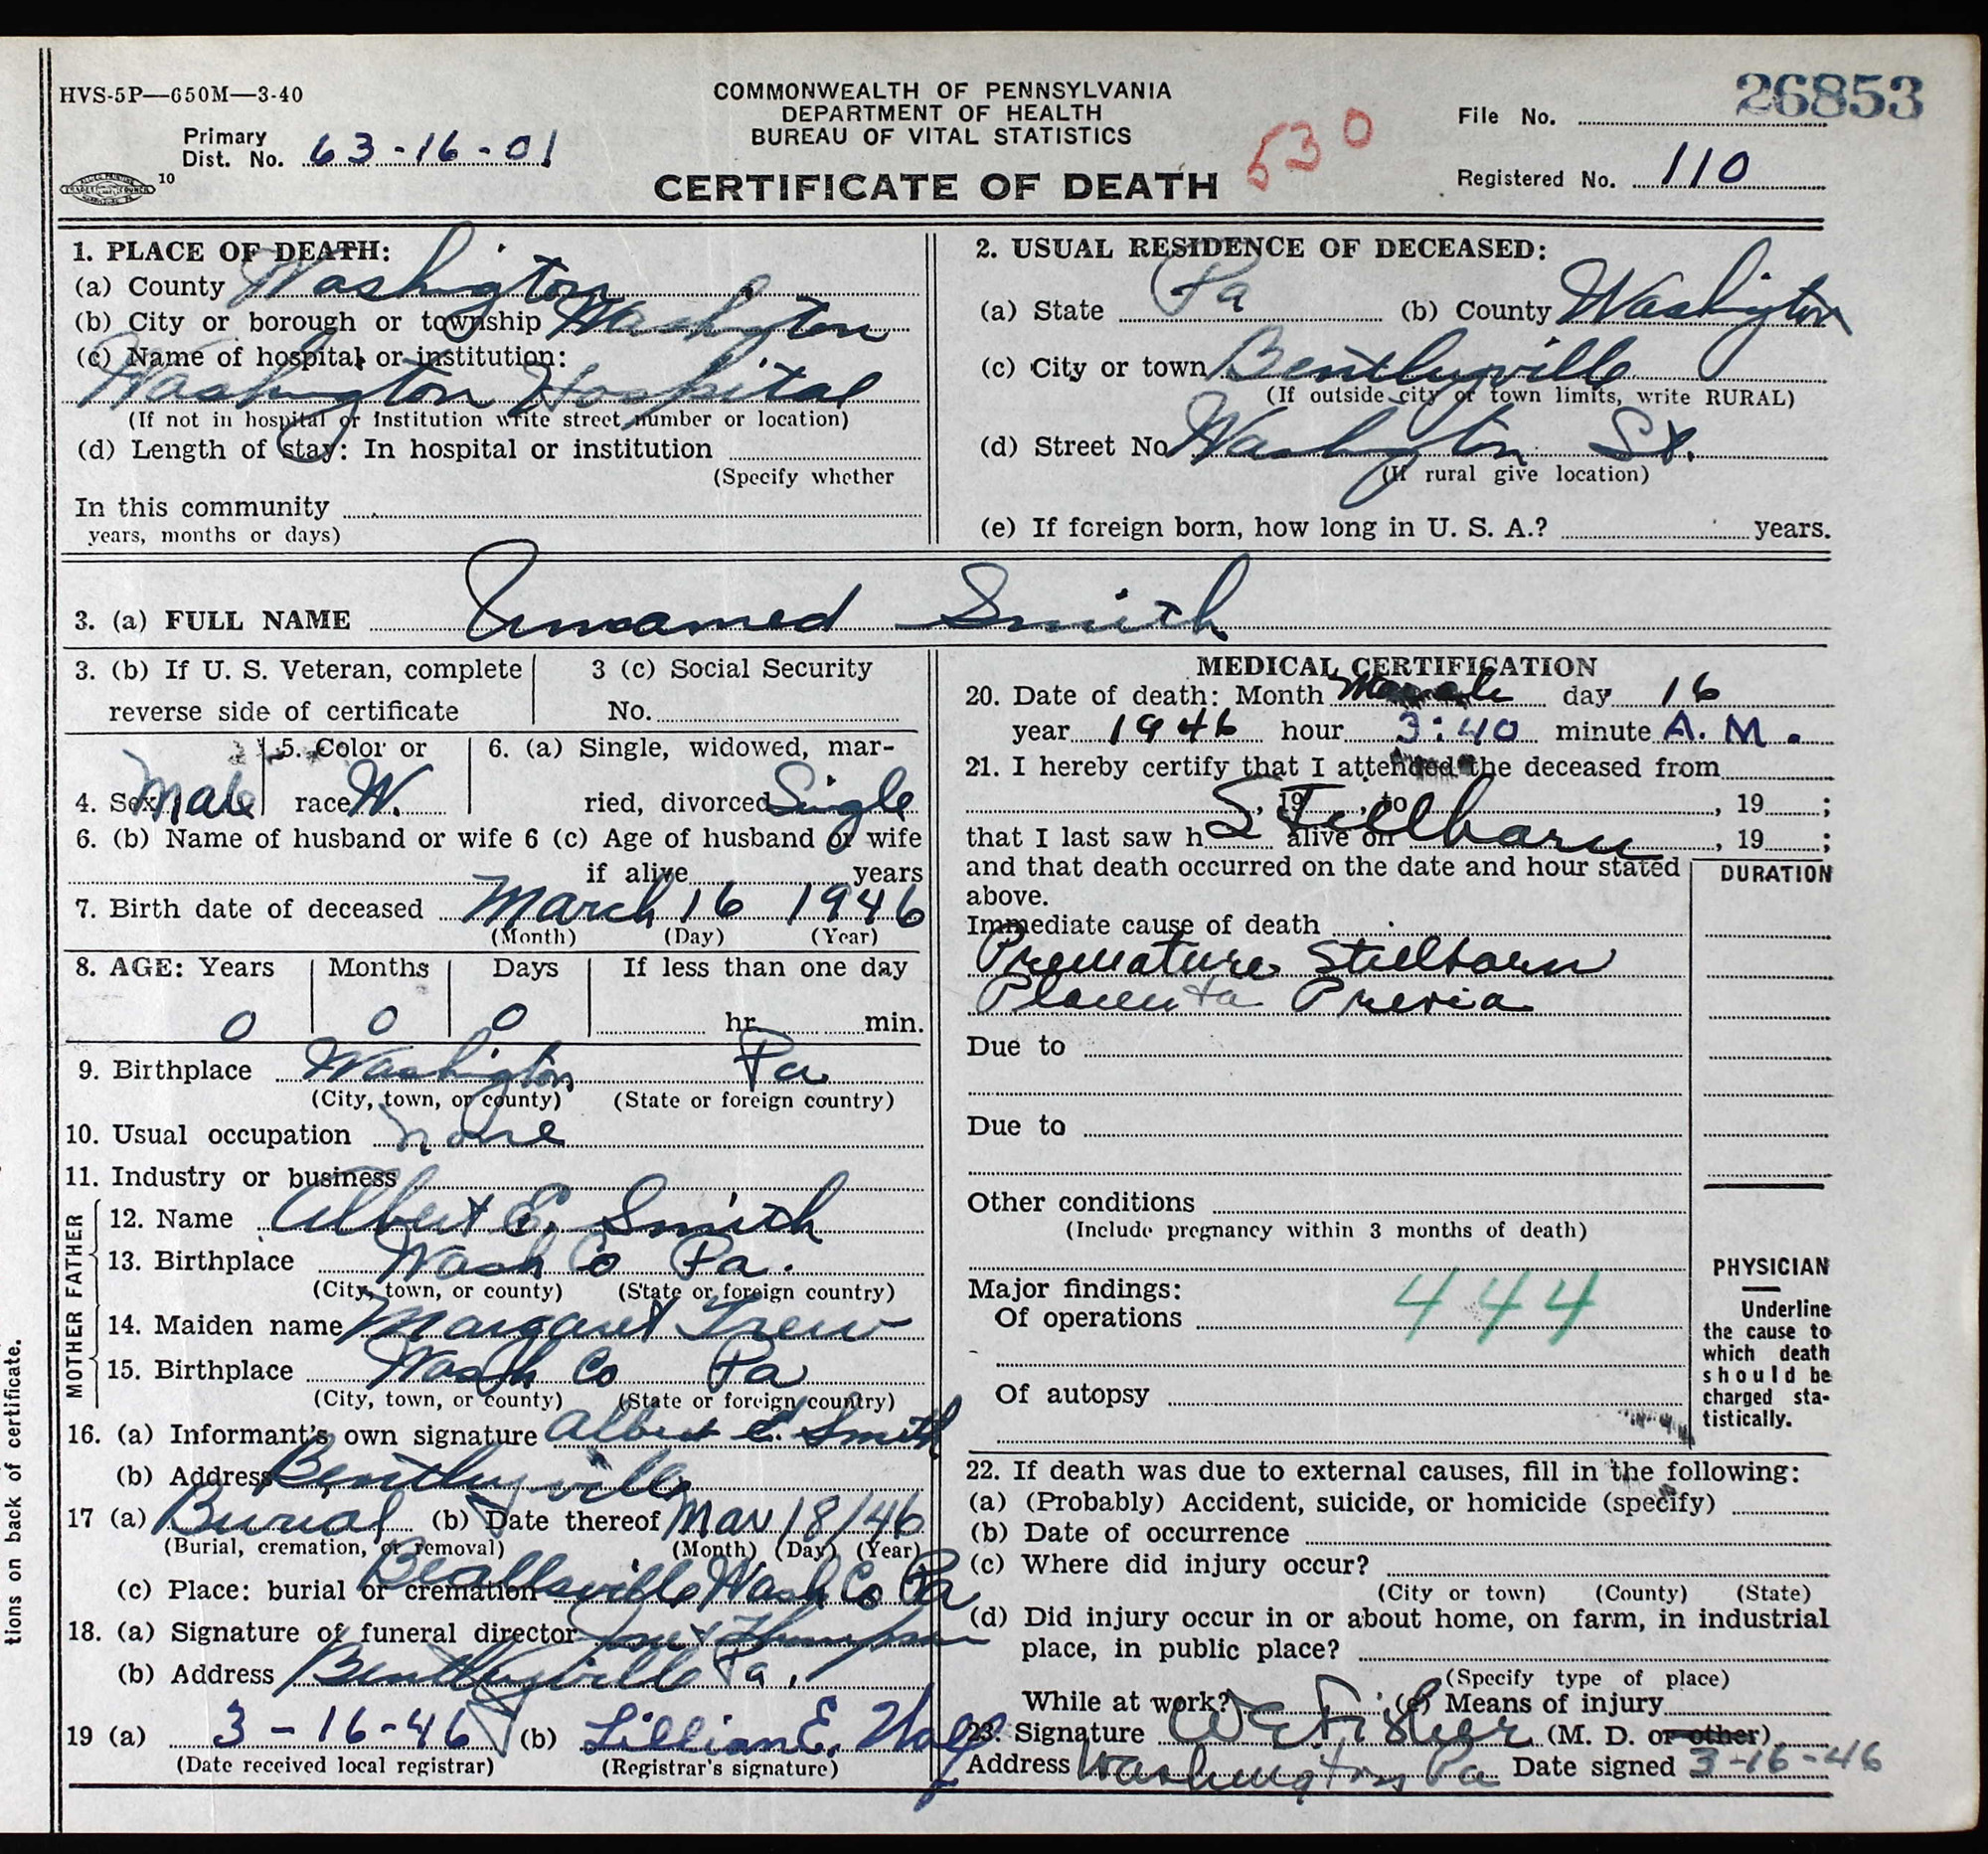 HVS-5P—650M—3-40
COMMONWEALTH OF PENNSYLVANIA
DEPARTMENT OF HEALTH
BUREAU OF VITAL STATISTICS
26853
File No.
Primary
Dist. No. 63-16-01
530
Registered No. 110
10
CERTIFICATE OF DEATH
1. PLACE OF DEATH:
(a) County Washington
(b) City or borough or township Washington
(c) Name of hospital or institution:
Washington Hospital
(If not in hospital or institution write street number or location)
(d) Length of stay: In hospital or institution
(Specify whether
In this community
years, months or days)
2. USUAL RESIDENCE OF DECEASED:
(a) State Pa (b) County Washington
(c) City or town Bentleyville
(If outside city or town limits, write RURAL)
(d) Street No. Washington St.
(If rural give location)
(e) If foreign born, how long in U. S. A.? years.
3. (a) FULL NAME Unnamed Smith
3. (b) If U. S. Veteran, complete
reverse side of certificate
3 (c) Social Security
No.
4. Sex Male
5. Color or
race W.
6. (a) Single, widowed, mar-
ried, divorced Single
6. (b) Name of husband or wife 6 (c) Age of husband or wife
if alive years
7. Birth date of deceased March 16 1946
(Month) (Day) (Year)
8. AGE: Years Months Days If less than one day
0 0 0 hr. min.
9. Birthplace Washington Pa
(City, town, or county) (State or foreign country)
10. Usual occupation none
11. Industry or business
FATHER
12. Name Albert E. Smith
13. Birthplace Wash Co Pa.
(City, town, or county) (State or foreign country)
MOTHER
14. Maiden name Margaret Trew
15. Birthplace Wash Co Pa
(City, town, or county) (State or foreign country)
16. (a) Informant's own signature Albert E. Smith
(b) Address Bentleyville
17 (a) Burial (b) Date thereof Mar 18/46
(Burial, cremation, or removal) (Month) (Day) (Year)
(c) Place: burial or cremation Beallsville Wash Co Pa
18. (a) Signature of funeral director
(b) Address Bentleyville Pa.
19 (a) 3-16-46 (b) Lillian E.
(Date received local registrar) (Registrar's signature)
MEDICAL CERTIFICATION
20. Date of death: Month March day 16
year 1946 hour 3:40 minute A. M.
21. I hereby certify that I attended the deceased from
, 19 , to , 19 ;
Stillborn
that I last saw h alive on , 19 ;
and that death occurred on the date and hour stated
above.
DURATION
Immediate cause of death
Premature Stillborn
Placenta Previa
Due to
Due to
Other conditions
(Include pregnancy within 3 months of death)
Major findings:
Of operations
444
Of autopsy
PHYSICIAN
Underline
the cause to
which death
should be
charged sta-
tistically.
22. If death was due to external causes, fill in the following:
(a) (Probably) Accident, suicide, or homicide (specify)
(b) Date of occurrence
(c) Where did injury occur?
(City or town) (County) (State)
(d) Did injury occur in or about home, on farm, in industrial
place, in public place?
(Specify type of place)
While at work? (e) Means of injury
23. Signature W E Fisher (M. D. or other)
Address Washington Pa Date signed 3-16-46
tions on back of certificate.